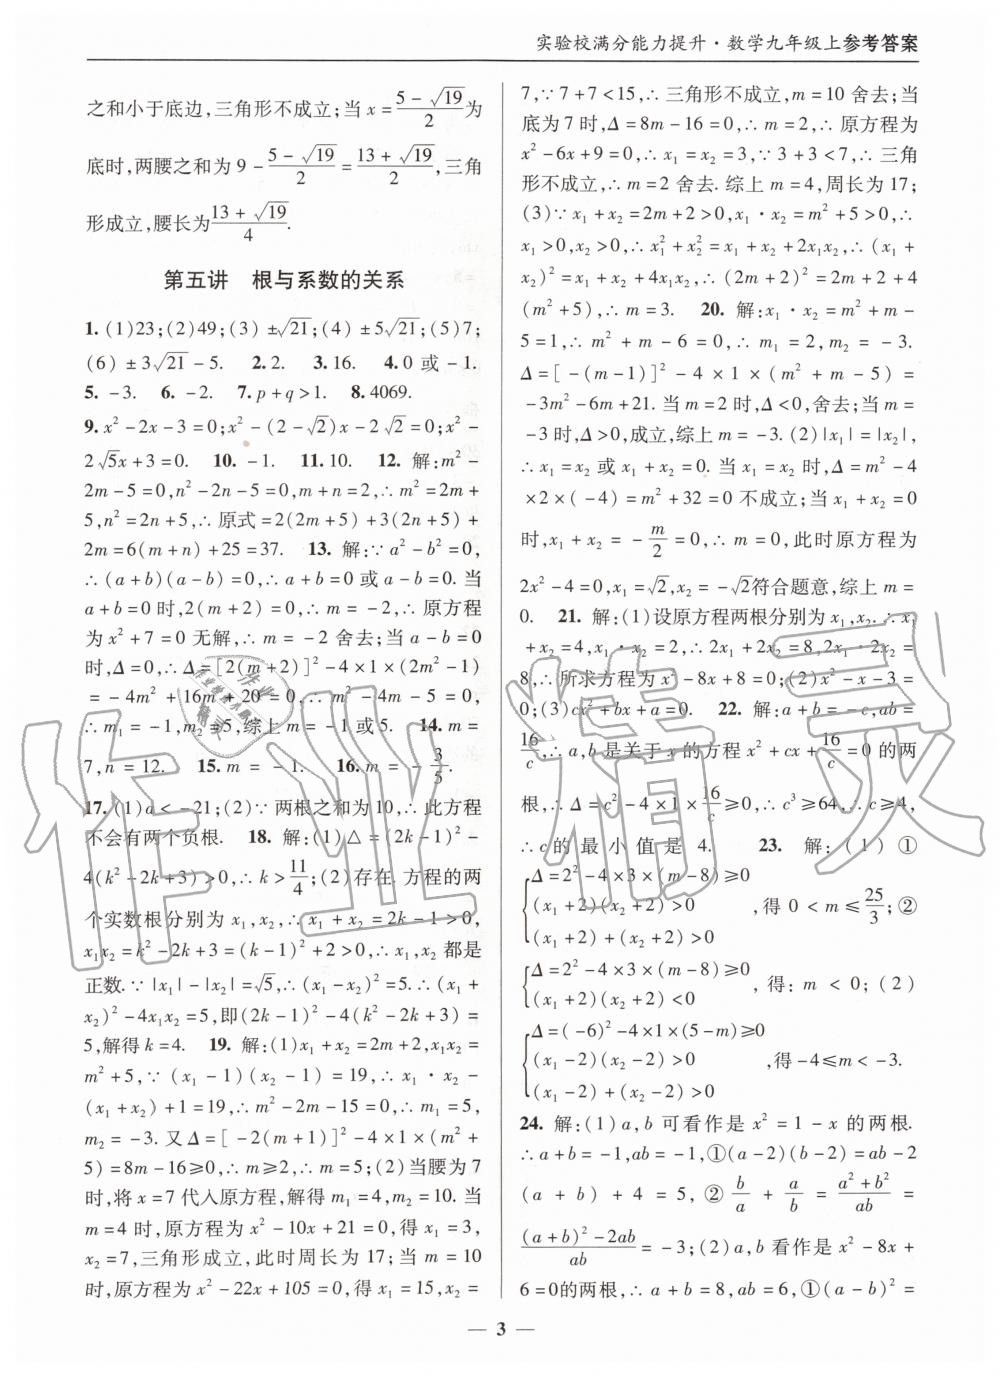 实验校满分能力提升·数学九年级上参考答案
之和小于底边,三角形不成立;当 x = (5-√19)/2 为
底时,两腰之和为 9 - (5-√19)/2 = (13+√19)/2,三角
形成立,腰长为(13+√19)/4.
第五讲 根与系数的关系
1. (1)23;(2)49;(3) ±√21;(4) ±5√21;(5)7;
(6) ±3√21 - 5. 2. 2. 3. 16. 4. 0 或 -1.
5. -3. 6. -2. 7. p+q>1. 8. 4069.
9. x²-2x-3=0;x²-(2-√2)x-2√2=0;x²-
2√5x+3=0. 10. -1. 11. 10. 12. 解:m²-
2m-5=0,n²-2n-5=0,m+n=2,∴m²=2m+
5,n²=2n+5,∴原式=2(2m+5)+3(2n+5)+
2m=6(m+n)+25=37. 13. 解:∵a²-b²=0,
∴(a+b)(a-b)=0,∴a+b=0或a-b=0. 当
a+b=0时,2(m+2)=0,∴m=-2,∴原方程
为x²+7=0无解,∴m=-2舍去;当a-b=0
时,Δ=0,∴Δ=[2(m+2)]²-4×1×(2m²-1)
=-4m²+16m+20=0,∴m²-4m-5=0,
∴m₁=-1,m₂=5,综上m=-1或5. 14. m=
7,n=12. 15. m=-1. 16. m=-3/5.
17. (1)a<-21;(2)∵两根之和为10,∴此方程
不会有两个负根. 18. 解:(1)△=(2k-1)²-
4(k²-2k+3)>0,∴k>11/4;(2)存在. 方程的两
个实数根分别为x₁,x₂,∴x₁+x₂=2k-1>0,
x₁x₂=k²-2k+3=(k-1)²+2>0,∴x₁,x₂都是
正数.∵|x₁|-|x₂|=√5,∴(x₁-x₂)²=5.∴(x₁+
x₂)²-4x₁x₂=5,即(2k-1)²-4(k²-2k+3)=
5,解得k=4. 19. 解:(1)x₁+x₂=2m+2,x₁x₂=
m²+5,∵(x₁-1)(x₂-1)=19,∴x₁·x₂-
(x₁+x₂)+1=19,∴m²-2m-15=0,∴m₁=5,
m₂=-3. 又Δ=[-2(m+1)]²-4×1×(m²+
5)=8m-16≥0,∴m≥2,∴m=5;(2)当腰为7
时,将x=7代入原方程,解得m₁=4,m₂=10. 当
m=4时,原方程为x²-10x+21=0,得x₁=3,
x₂=7,三角形成立,此时周长为17;当m=10
时,原方程为x²-22x+105=0,得x₁=15,x₂=
7,∵7+7<15,∴三角形不成立,m=10舍去;当
底为7时,Δ=8m-16=0,∴m=2,∴原方程为
x²-6x+9=0,∴x₁=x₂=3,∵3+3<7,∴三角
形不成立,∴m=2舍去. 综上m=4,周长为17;
(3)∵x₁+x₂=2m+2>0,x₁·x₂=m²+5>0,∴
x₁>0,x₂>0,∴x₁²+x₂²=x₁+x₂+2x₁x₂,∴(x₁+
x₂)²=x₁+x₂+4x₁x₂,∴(2m+2)²=2m+2+4
(m²+5),∴m=3. 20. 解:x₁·x₂=m²+m-
5=1,∴m²+m-6=0,∴m₁=2,m₂=-3.
Δ=[-(m-1)]²-4×1×(m²+m-5)=
-3m²-6m+21. 当m=2时,Δ<0,舍去;当m=
-3时,Δ>0,成立,综上m=-3. (2)|x₁|=|x₂|,
∴x₁=x₂或x₁+x₂=0. 当x₁=x₂时,Δ=m²-4
×2×(-4)=m²+32=0不成立;当x₁+x₂=0
时,x₁+x₂=-m/2=0,∴m=0,此时原方程为
2x²-4=0,x₁=√2,x₂=-√2符合题意,综上m=
0. 21. 解:(1)设原方程两根分别为x₁,x₂.∴x₁
+x₂=4,x₁·x₂=2,∴2x₁+2x₂=8,2x₁·2x₂=
8,∴所求方程为x²-8x+8=0;(2)x²-x-3=
0;(3)cx²+bx+a=0. 22. 解:a+b=-c,ab=
16/c,∴a,b是关于x的方程x²+cx+16/c=0的两
根,∴Δ=c²-4×1×16/c≥0,∴c³≥64,∴c≥4,
∴c的最小值是4. 23. 解:(1)①
{Δ=2²-4×3×(m-8)≥0
(x₁+2)(x₂+2)>0 ,得0<m≤25/3;②
(x₁+2)+(x₂+2)>0
{Δ=2²-4×3×(m-8)≥0
(x₁+2)(x₂+2)<0 ,得:m<0;(2)
{Δ=(-6)²-4×1×(5-m)≥0
(x₁-2)(x₂-2)>0 ,得-4≤m<-3.
(x₁-2)+(x₂-2)>0
24. 解:(1)a,b可看作是x²=1-x的两根.
∴a+b=-1,ab=-1,①(a-2)(b-2)=ab-2
(a+b)+4=5,②b/a+a/b=(a²+b²)/ab=
((a+b)²-2ab)/ab=-3;(2)a,b看作是x²-8x+
6=0的两根,∴a+b=8,ab=6,①(a-b)²=
— 3 —
作业精灵